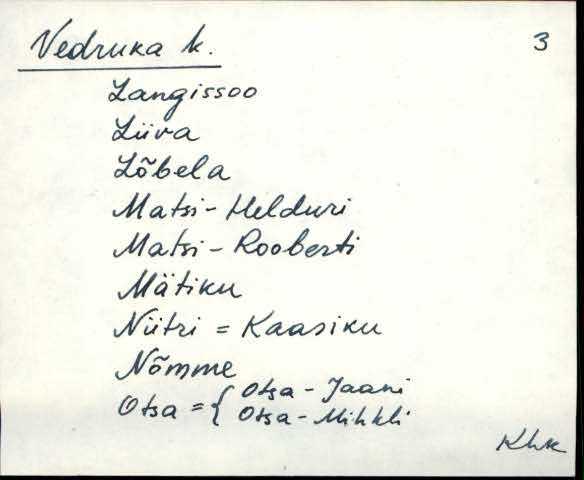 Vedruka k. 3
Langissoo
Liiva
Lõbela
Matsi-Helduri
Matsi-Rooberti
Mätiku
Niitri = Kaasiku
Nõmme
Otsa = { Otsa-Jaani
Otsa-Mihkli
Khk